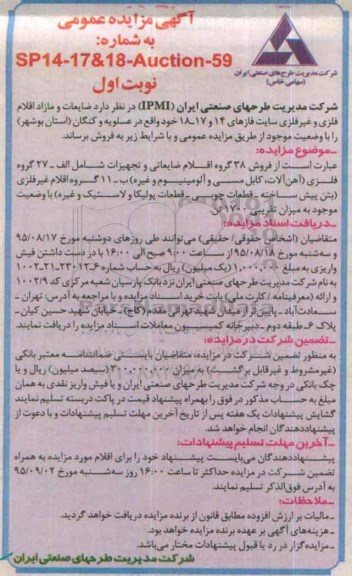 آگهی مزایده عمومی
به شماره:
SP14-17&18-Auction-59
نوبت اول
شرکت مدیریت طرح‌های صنعتی ایران
(سهامی خاص)
شرکت مدیریت طرحهای صنعتی ایران (IPMI) در نظر دارد ضایعات و مازاد اقلام
فلزی و غیر فلزی سایت فازهای ۱۴ و ۱۷-۱۸ خود واقع در عسلویه و کنگان (استان بوشهر)
را با وضعیت موجود از طریق مزایده عمومی و با شرایط زیر به فروش برساند.
ـ موضوع مزایده:
عبارت است از فروش ۳۸ گروه اقلام ضایعاتی و تجهیزات شامل الف ـ ۲۷ گروه
فلزی (آهن‌آلات، کابل مسی و آلومینیوم و غیره) ب ـ ۱۱ گروه اقلام غیر فلزی
(بتن پیش ساخته، قطعات ـ قطعات پولیکا و لاستیک و غیره) با وضعیت
موجود به میزان تقریبی تن.
ـ دریافت اسناد مزایده:
متقاضیان (اشخاص حقوقی/حقیقی) می‌توانند طی روزهای دوشنبه مورخ ۹۵/۰۸/۱۷
و سه‌شنبه مورخ ۹۵/۰۸/۱۸ از ساعت ۹:۰۰ صبح الی ۱۶:۰۰ با در دست داشتن فیش
واریزی به مبلغ ۱,۰۰۰,۰۰۰ (یک میلیون) ریال به حساب شماره
به نام شرکت مدیریت طرحهای صنعتی ایران نزد بانک پارسیان شعبه مرکزی کد ۱۰۰۲/۹
و ارائه (معرفینامه / کارت ملی) بابت خرید اسناد مزایده و با مراجعه به آدرس: تهران ـ
سعادت‌آباد ـ پایین‌تر از میدان شهید تهرانی مقدم (کاج)، خیابان شهید حسین کیان ـ
پلاک ۶ ـ طبقه دوم ـ دبیرخانه کمیسیون معاملات اسناد مزایده را دریافت نمایند.
ـ تضمین شرکت در مزایده:
به منظور تضمین شرکت در مزایده، متقاضیان بایستی ضمانتنامه معتبر بانکی
(غیر مشروط و غیرقابل برگشت) به میزان ۳۰۰,۰۰۰,۰۰۰ (سیصد میلیون) ریال و یا
چک بانکی در وجه شرکت مدیریت طرحهای صنعتی ایران و یا فیش واریز نقدی به همان
مبلغ به حساب مذکور در فوق را بهمراه پیشنهاد قیمت در پاکت دربسته تسلیم نمایند
گشایش پیشنهادات یک هفته پس از تاریخ آخرین مهلت تسلیم پیشنهادات و با دعوت از
پیشنهاددهندگان انجام خواهد شد.
ـ آخرین مهلت تسلیم پیشنهادات:
پیشنهاددهندگان می‌بایست پیشنهاد خود را برای اقلام مورد مزایده به همراه
تضمین شرکت در مزایده حداکثر تا ساعت ۱۶:۰۰ روز سه‌شنبه مورخ ۹۵/۰۹/۰۲
به آدرس فوق‌الذکر تسلیم نمایند.
ـ ملاحظات:
ـ مالیات بر ارزش افزوده مطابق قانون از برنده مزایده دریافت خواهد گردید.
ـ هزینه‌های آگهی بر عهده برنده مزایده خواهد بود.
ـ مزایده‌گزار در رد یا قبول پیشنهادات مختار می‌باشد.
شرکت مدیریت طرحهای صنعتی ایران